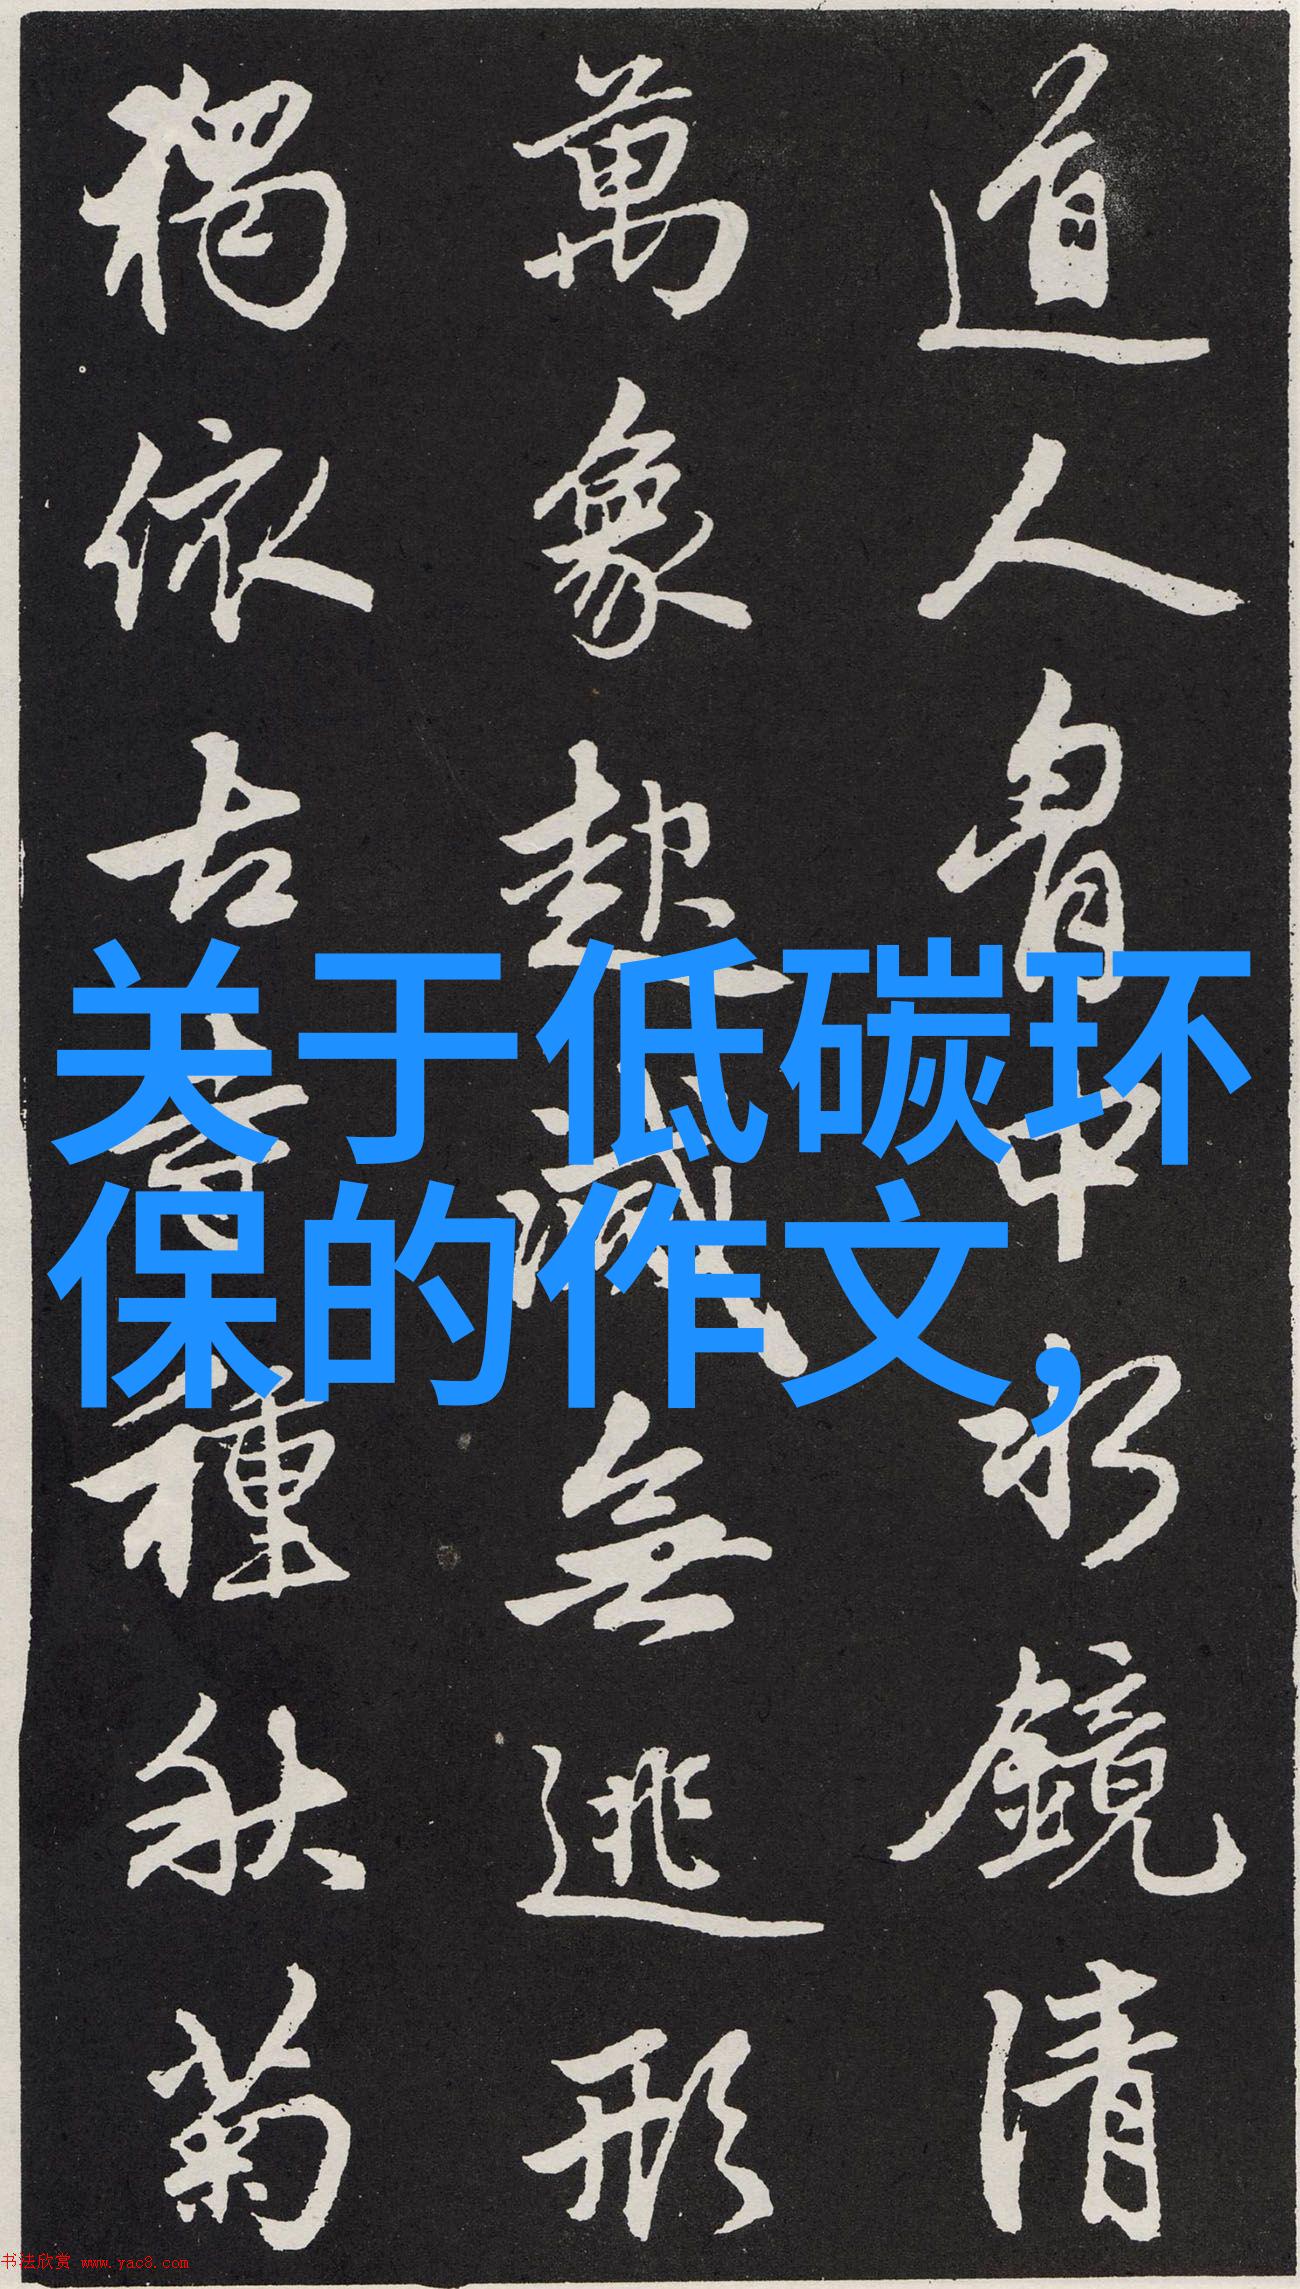 道人胷中水鏡清
萬象起滅無逃形
獨依古寺種秋菊
关于低碳环
保的作文,
书法欣赏 www.yac8.com